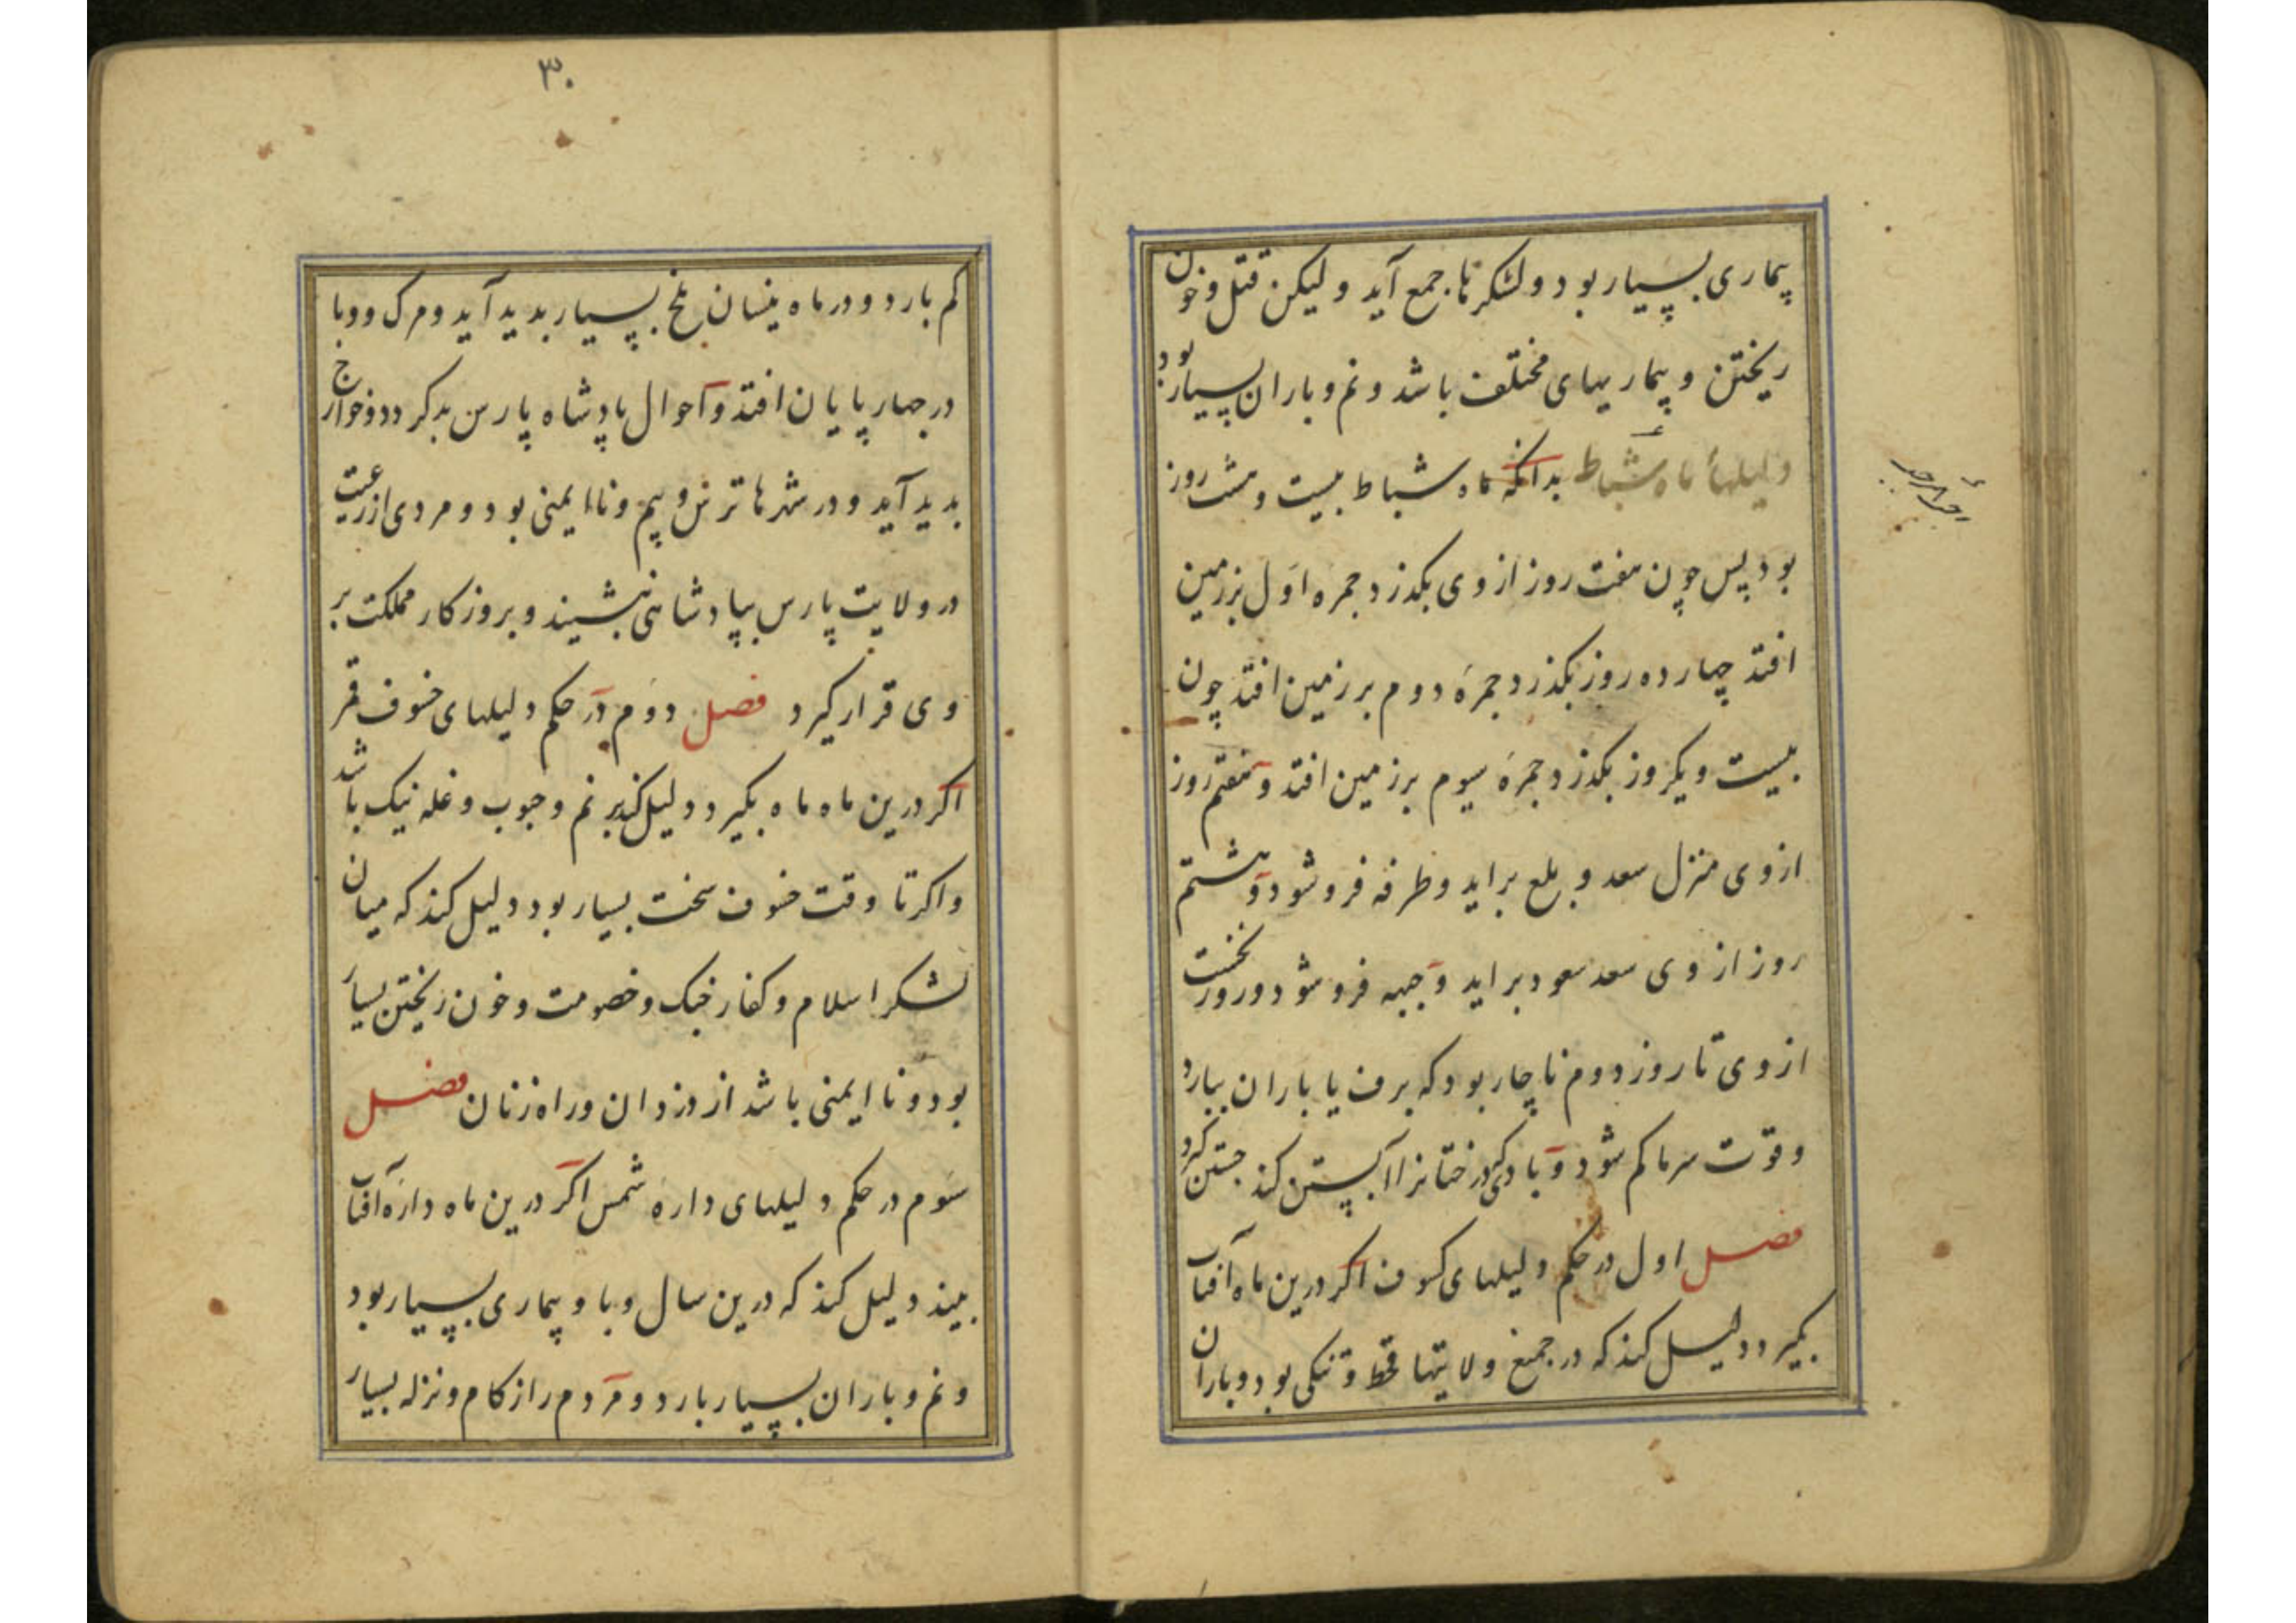 بیماری بسیار بود و لشکرها جمع آید و لیکن قتل و خون
ریختن و بیماریهای مختلف باشد و نم و باران بسیار بود
دلیلهاٴ ماه شباط بدانکه ماه شباط بیست و هشت روز
بود پس چون هفت روز از وی بکذرد جمرهٔ اول بزرمین
افتد چهارده روز بکذرد جمرهٔ دوم بر زمین افتد چون
بیست و یکروز بکذرد جمرهٔ سیوم بر زمین افتد و هفتم روز
از وی منزل سعد و بلع براید و طرفه فرو شود و هشتم
روز از وی سعد سعود براید و جبهه فرو شود و روز نخست
از وی تا روز دوم ناچار بود که برف یا باران ببارد
و قوت سرما کم شود و بادکی درختانرا آبستن کند جستن کیرد
فصل اول در حکم دلیلهای کسوف اکر درین ماه آفتاب
بکیرد دلیل کند که در جمیع ولایتها قحط و تنکی بود و باران
۳۰
کم بارد و در ماه نیسان ملخ بسیار بدید آید و مرک و وبا
در چهارپایان افتد و احوال پادشاه پارس بد کردد و خوارج
بدید آید و در شهرها ترس و بیم و ناایمنی بود و مردی از رعیت
در ولایت پارس بپادشاهی نشیند و بروزکار مملکت بر
وی قرار کیرد فصل دوم در حکم دلیلهای خسوف قمر
اکر درین ماه ماه بکیرد دلیل کند بر نم و حبوب و غله نیک باشد
و اکر تا وقت خسوف سخت بسیار بود دلیل کند که میان
لشکر اسلام و کفار جنک و خصومت و خون ریختن بسیار
بود و نا ایمنی باشد از دزدان و راه زنان فصل
سوم در حکم دلیلهای دارهٔ شمس اکر درین ماه دارهٔ آفتاب
بیند دلیل کند که درین سال وبا و بیماری بسیار بود
و نم و باران بسیار بارد و مردم را زکام و نزله بسیار